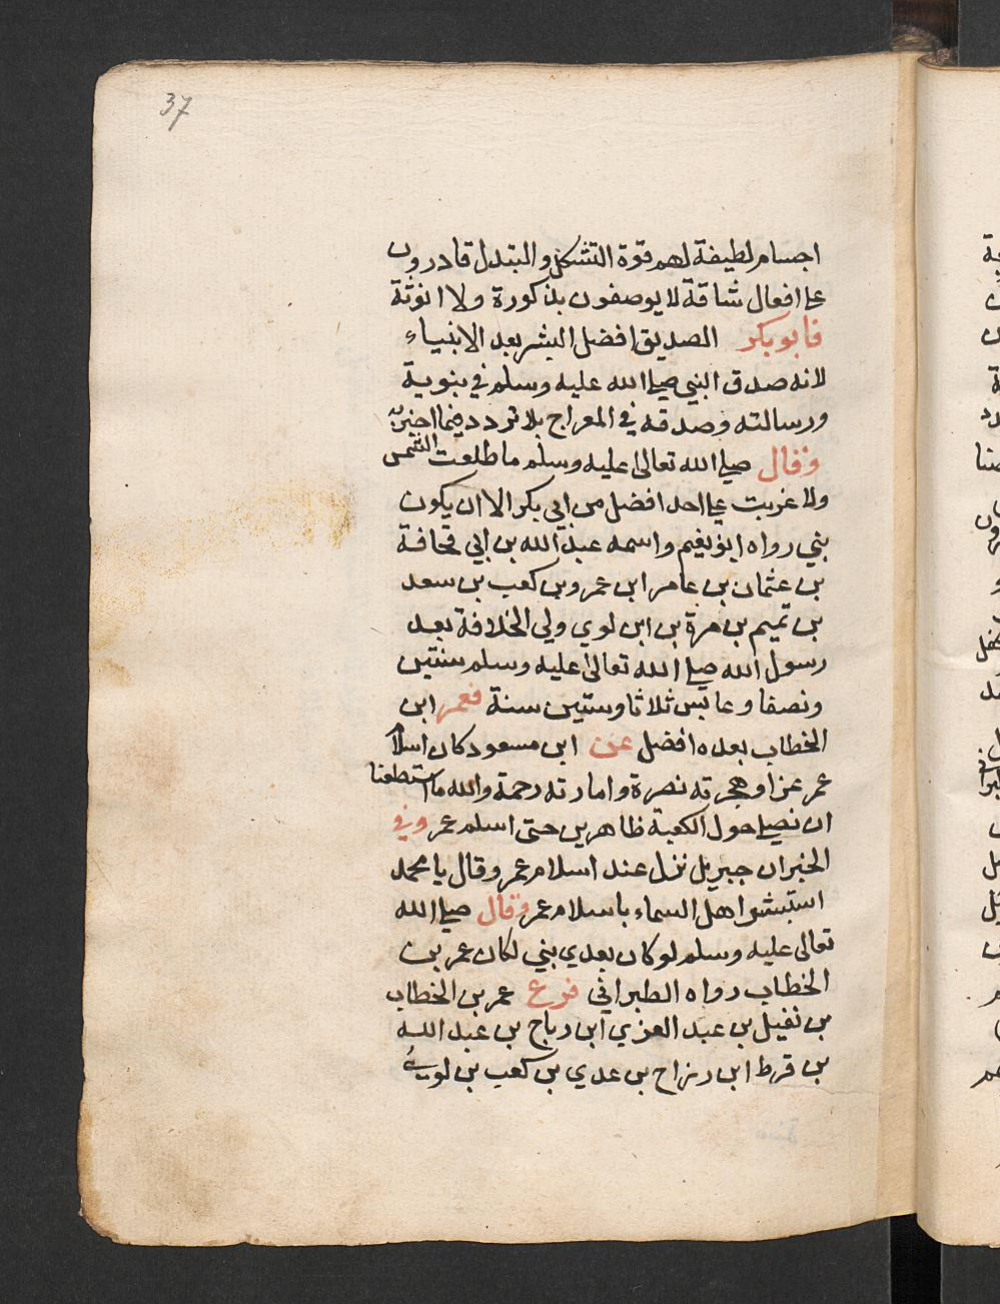 37
اجسام لطيفة لهم قوة التشكل والتبدل قادرون
على افعال شاقة لا يوصفون بذكورة ولا انوثة
فابوبكر الصديق افضل البشر بعد الانبياء
لانه صدق النبي صلى الله عليه وسلم في بنوية
ورسالته وصدقه في المعراج بلا تردد فيما اخبر به
وقال صلى الله تعالى عليه وسلم ما طلعت الشمس
ولا غربت على احد افضل من ابي بكر الا ان يكون
بني رواه ابو نعيم واسمه عبد الله بن ابي قحافة
بن عثمان بن عامر ابن عمرو بن كعب بن سعد
بن تميم بن مرة بن ابن لوي ولي الخلافة بعد
رسول الله صلى الله تعالى عليه وسلم سنتين
ونصفا وعاش ثلاثا وستين سنة فعمر ابن
الخطاب بعده افضل عن ابن مسعود كان اسلام
عمر عزا وهجرته نصرة وامارته رحمة والله ما استطعنا
ان نصلي حول الكعبة ظاهرين حتى اسلم عمر وفي
الخبر ان جبريل نزل عند اسلام عمر وقال يا محمد
استبشر اهل السماء باسلام عمر وقال صلى الله
تعالى عليه وسلم لو كان بعدي بني لكان عمر بن
الخطاب رواه الطبراني فرع عمر بن الخطاب
بن نفيل بن عبد العزي ابن رباح بن عبد الله
بن قرط ابن رزاح بن عدي بن كعب بن لوي